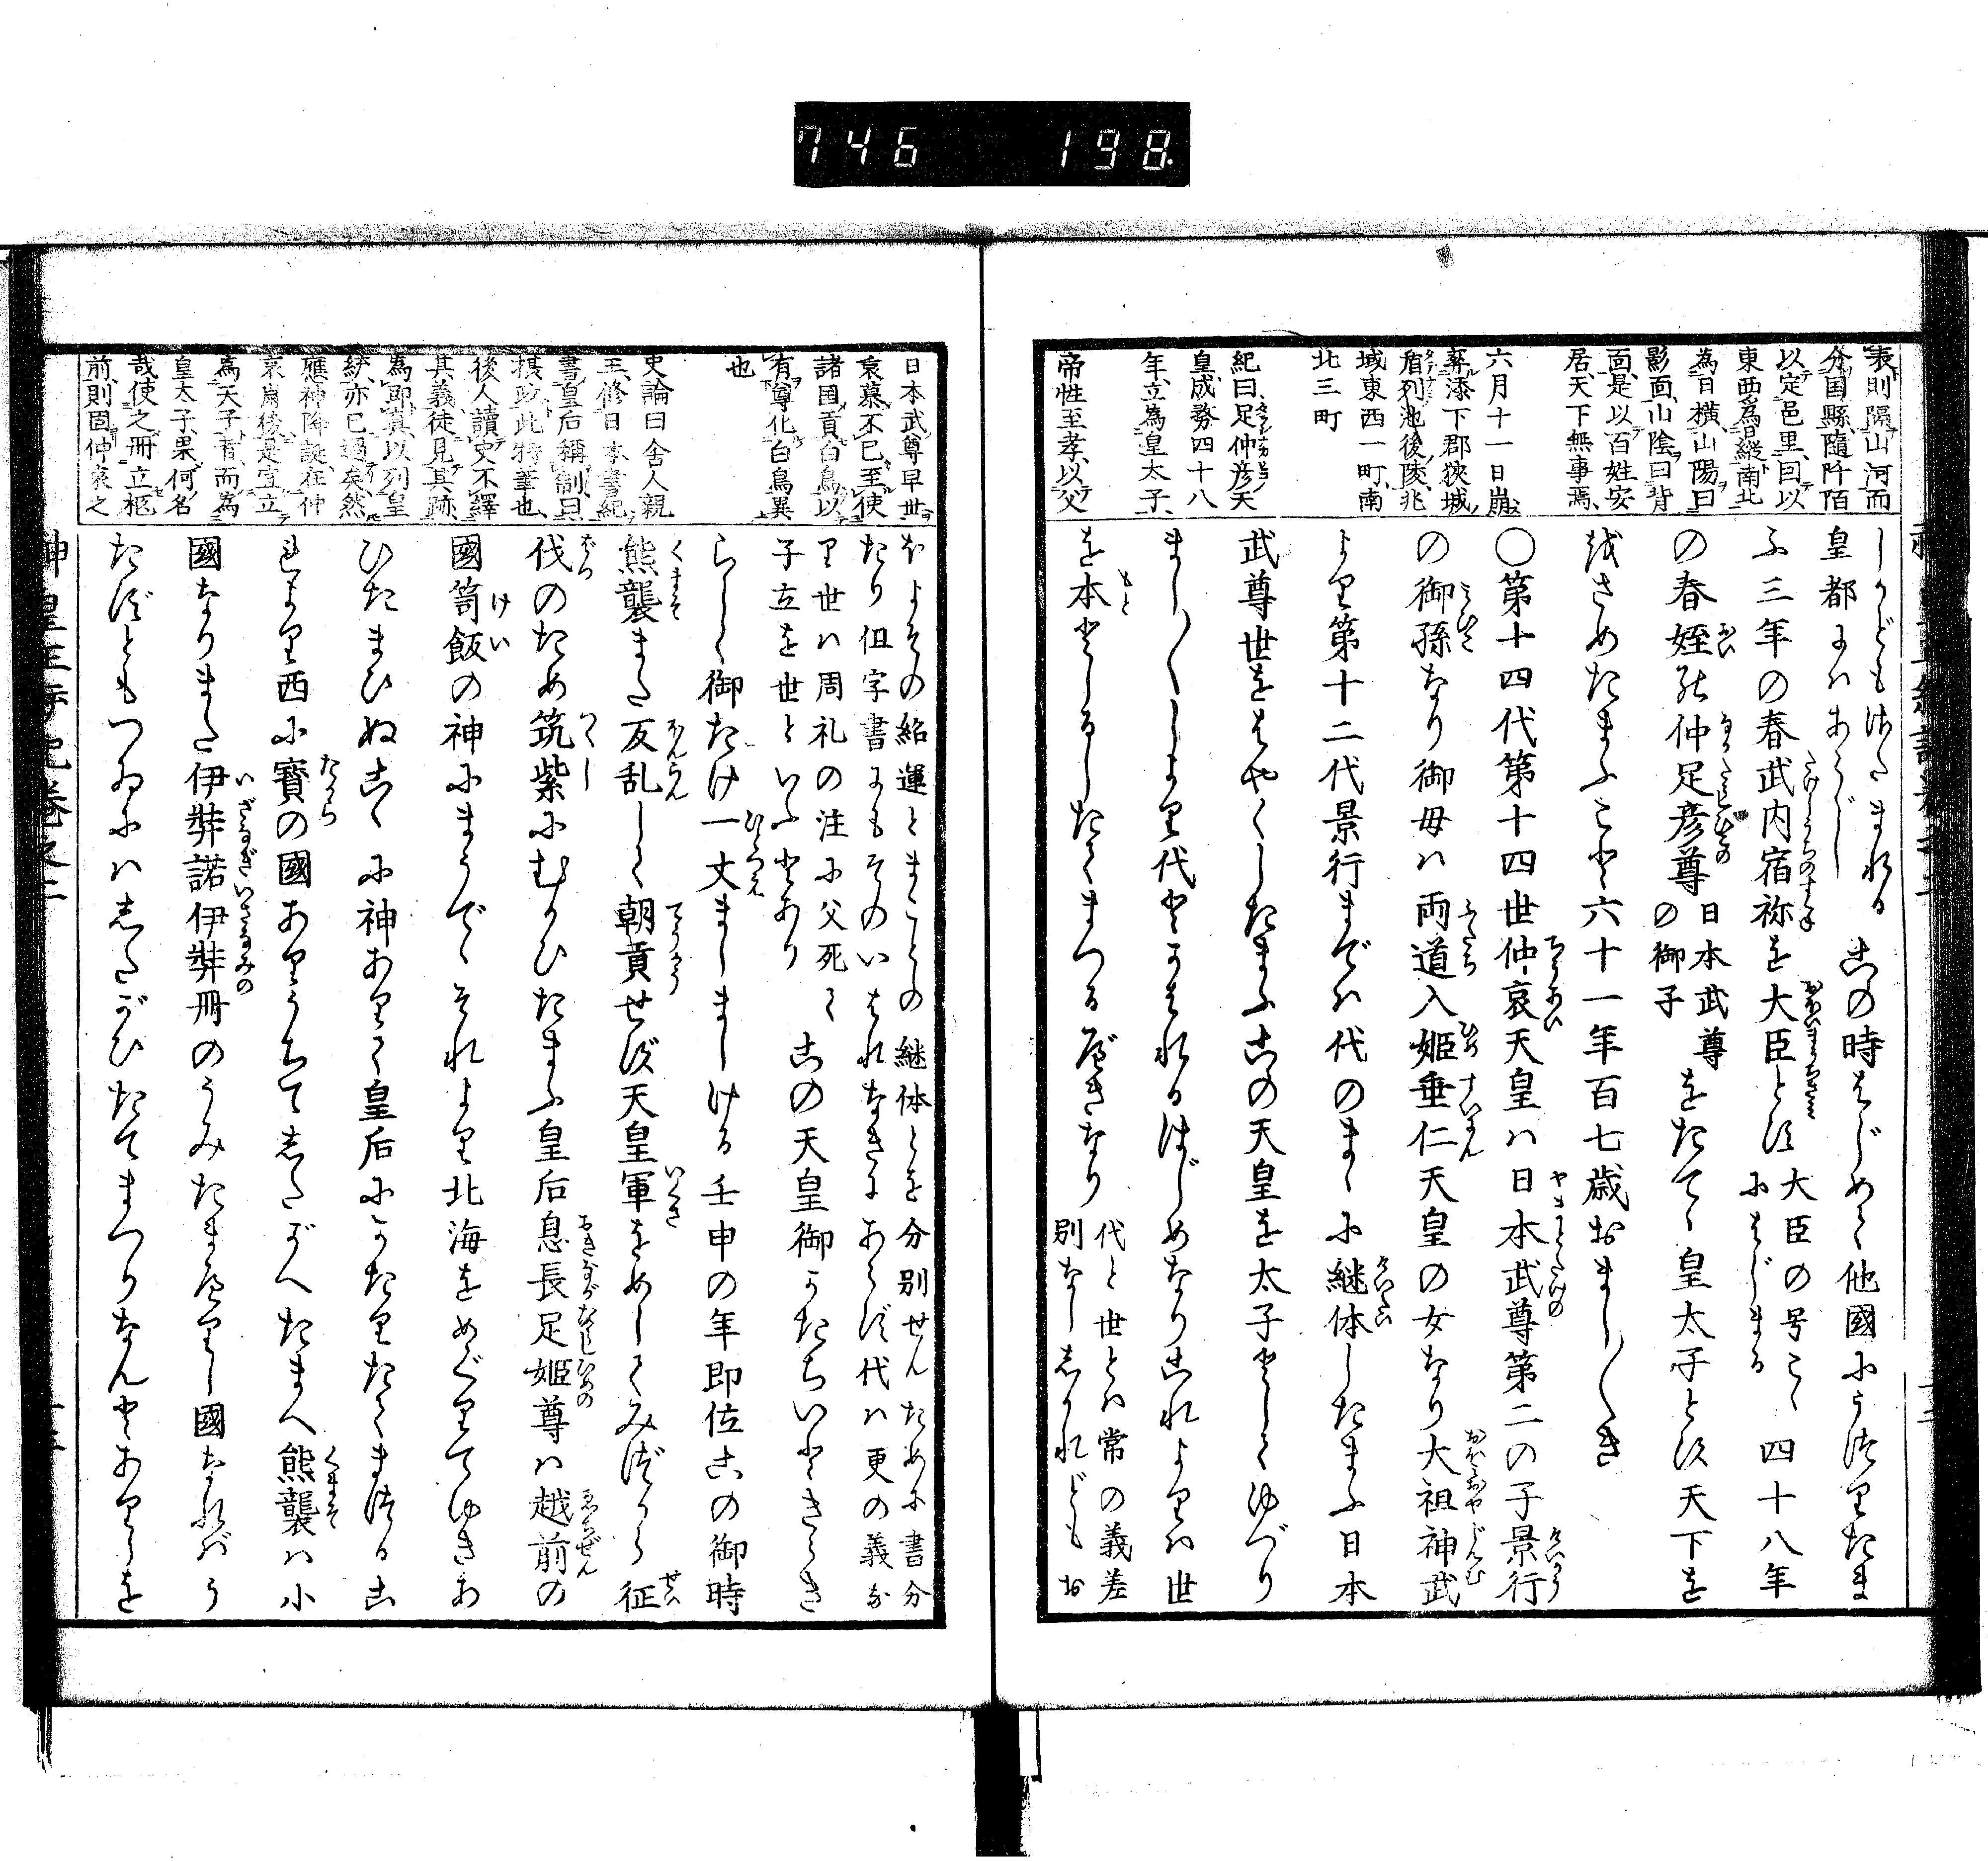 746 198
表則隔山河而
分国縣隨阡陌
以定邑里因以
東西為日縦南北
為日横山陽曰
影面山陰曰背
面是以百姓安
居天下無事焉
六月十一日崩
葬添下郡狹城
盾列池後陵兆
域東西一町南
北三町
紀曰足仲彦天
皇成務四十八
年立為皇太子
帝性至孝以父
しかどもはたまれる この時はじめて他國にうつりたま
皇都にはあらじ
ふ三年の春武内宿祢を大臣とす 大臣の号こゝ 四十八年
にはじまる
の春姪の仲足彦尊 日本武尊 をたてゝ皇太子とす天下を
の御子
おさめたまふこと六十一年百七歳おまし〳〵き
〇第十四代第十四世仲哀天皇ハ日本武尊第二の子景行
の御孫なり御母ハ両道入姫垂仁天皇の女なり大祖神武
より第十二代景行までハ代のまゝに継体したまふ日本
武尊世をはやくしたまふこの天皇を太子としてゆづり
まし〳〵しより代とかはれるはじめなりこれよりハ世
を本としるしたてまつるべきなり 代と世とハ常の義差
別なししかれどもお
日本武尊早世
哀慕不已至使
諸國貢白鳥以
有尊化白鳥異
也
史論曰舎人親
王修日本書紀
書皇后稱制曰
摂政此特筆也
後人讀史不繹
其義徒見其跡
為即真以列皇
統亦已過矣然
應神降誕在仲
哀崩後是宜立
為天子者而為
皇太子果何名
哉使之冊立柩
前則固仲哀之
ほよその紹運とまことの継体とを分別せんために書分
たり但字書にもそのいはれなきにあらず代ハ更の義な
り世ハ周礼の注に父死て この天皇御かたちいときらき
子立を世といふとあり
らしく御たけ一丈ましましける壬申の年即位この御時
熊襲また反乱して朝貢せず天皇軍をめしてみづから征
伐のため筑紫にむかひたまふ皇后息長足姫尊ハ越前の
國笥飯の神にまうでゝそれより北海をめぐりてゆきあ
ひたまひぬこゝに神ありて皇后にかたりたてまつるこ
れより西に寳の國ありうちてしたがへたまへ熊襲ハ小
國なりまた伊弉諾伊弉冊のうみたまへりし國なればう
たずともつゐにハしたがひたてまつりなんとありしを